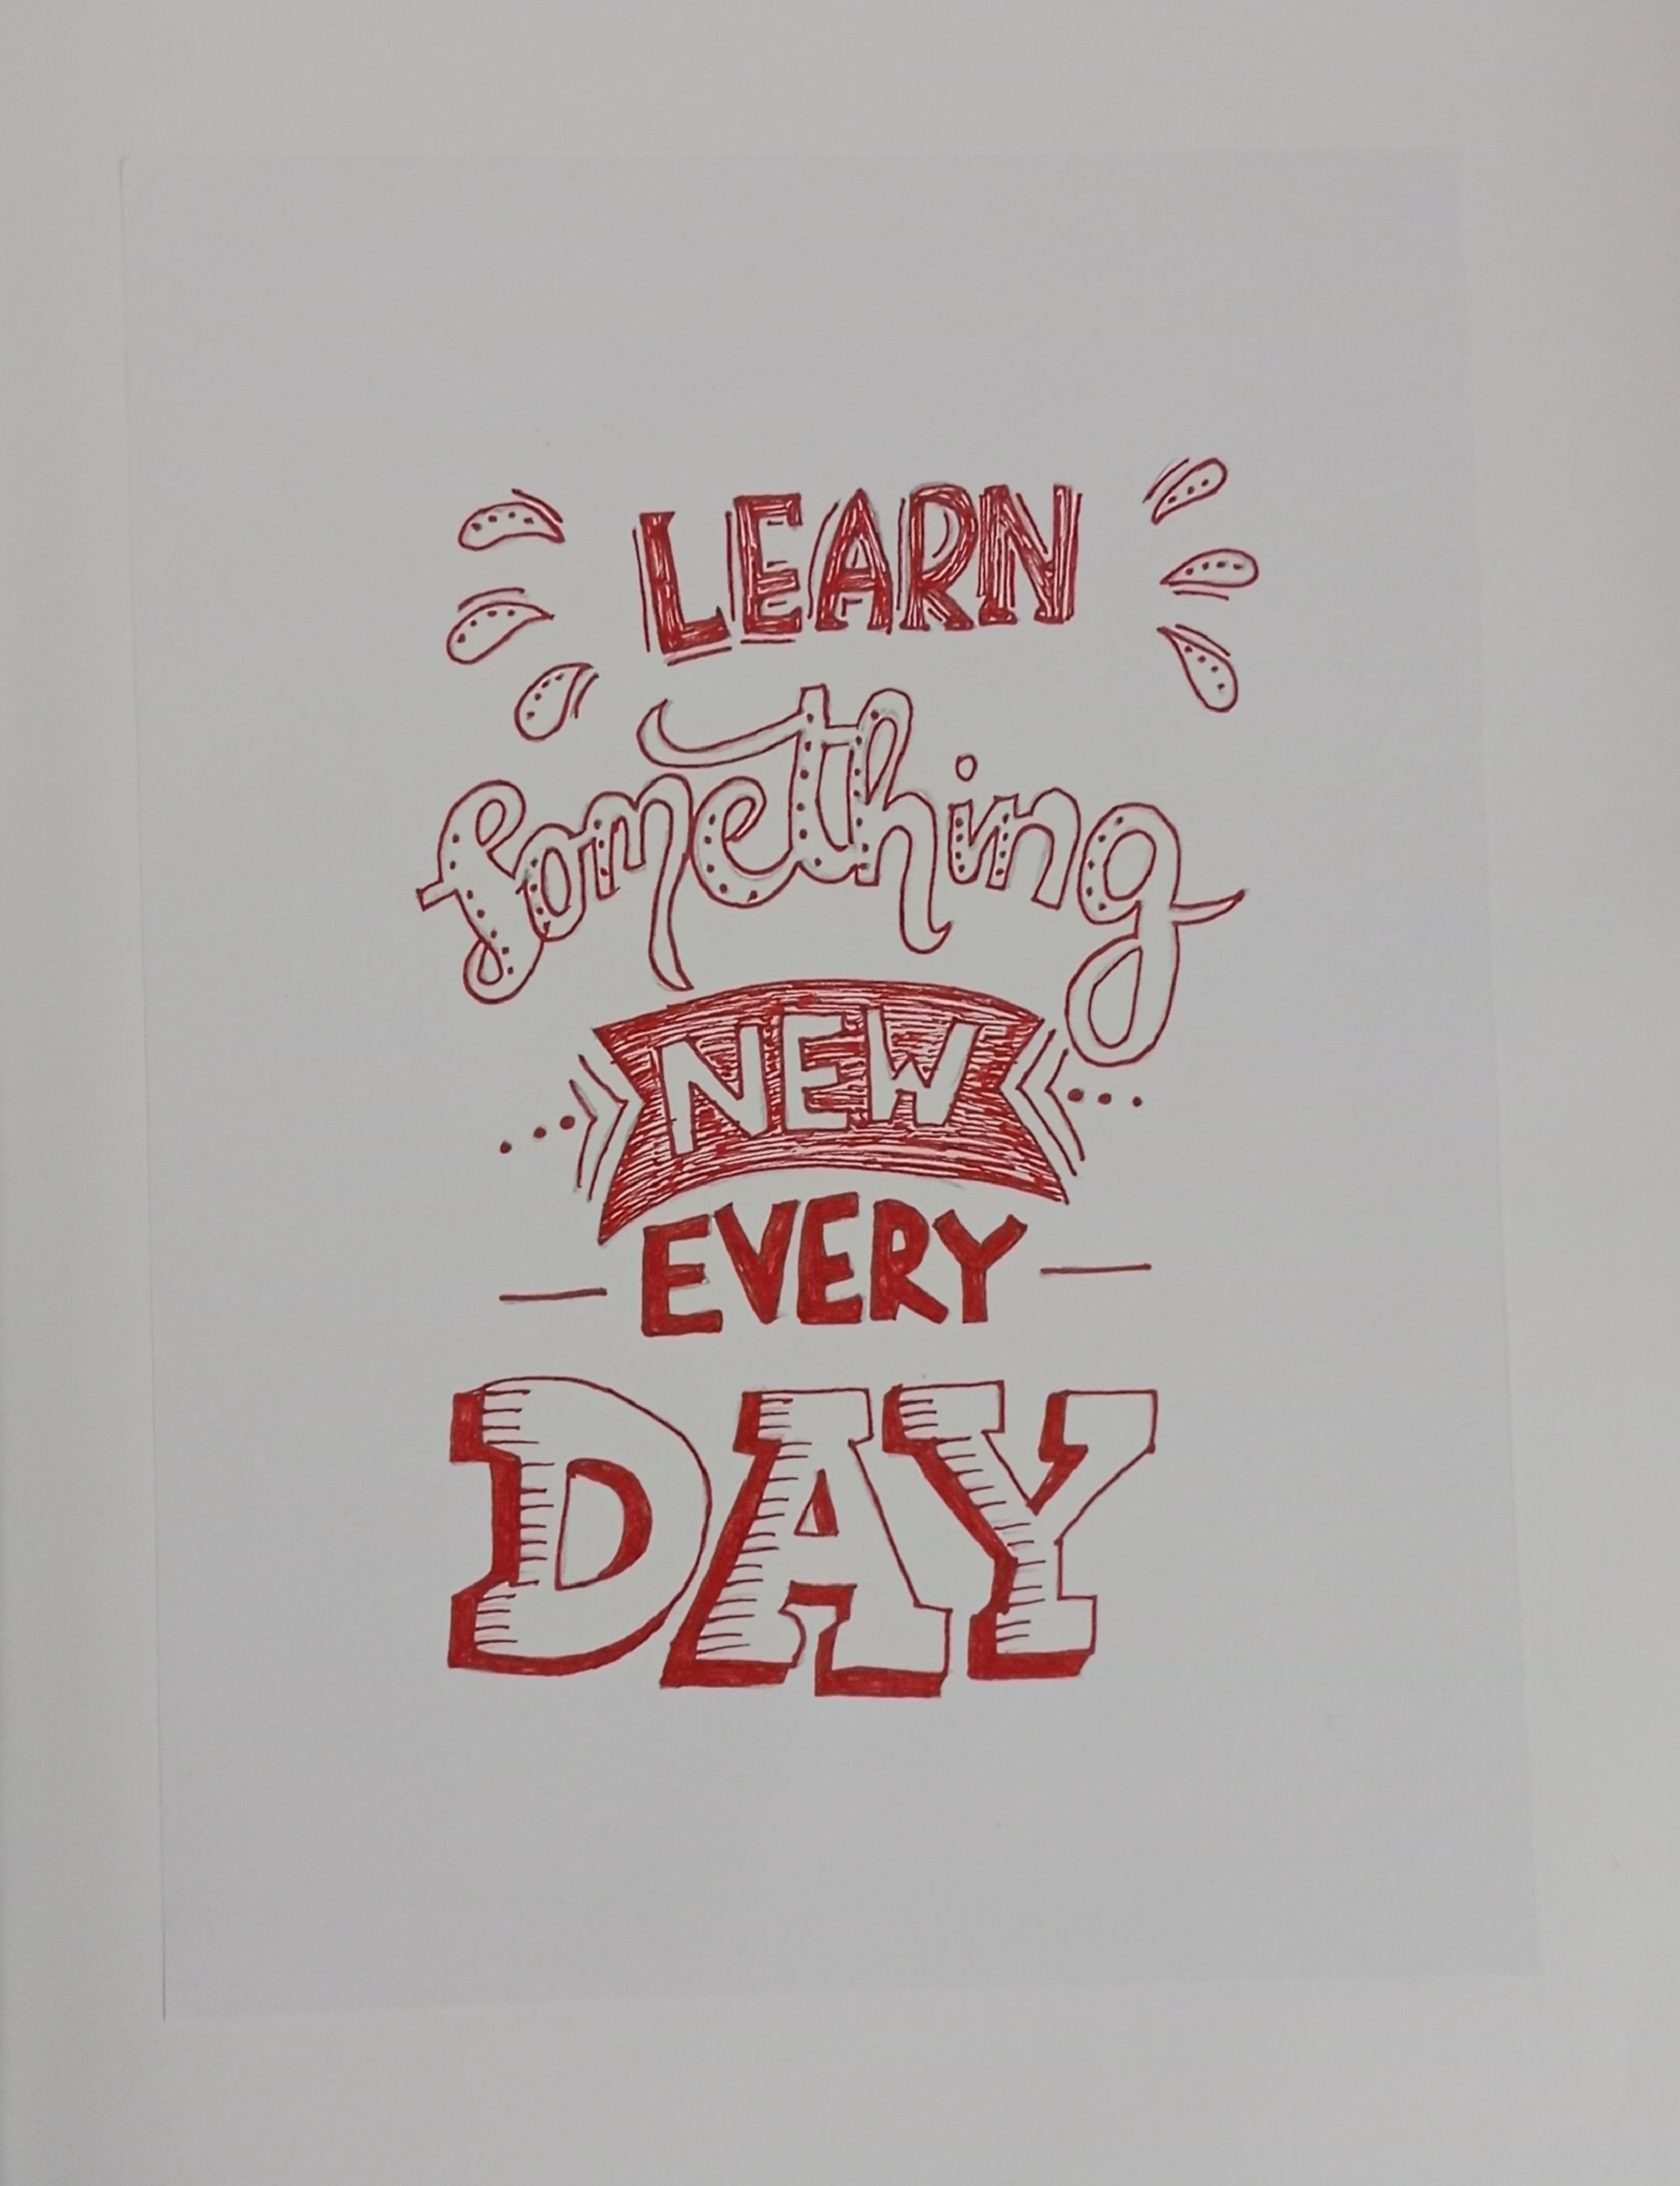 LEARN
Something
NEW
EVERY
DAY